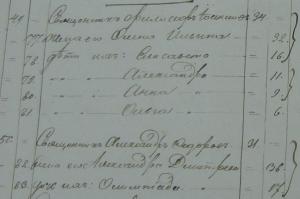 40. Священникъ Филиповъ 34.
77. Жена его Ольга Ильина 32.
78. Дѣти ихъ: Елисавета 16
79. Александра 11
80. Анна 9
81. Ольга 6
50. Священникъ Александръ Ѳедоровъ 31
82. жена его Александра Дмитрева
83. дочь ихъ: Олимпіада